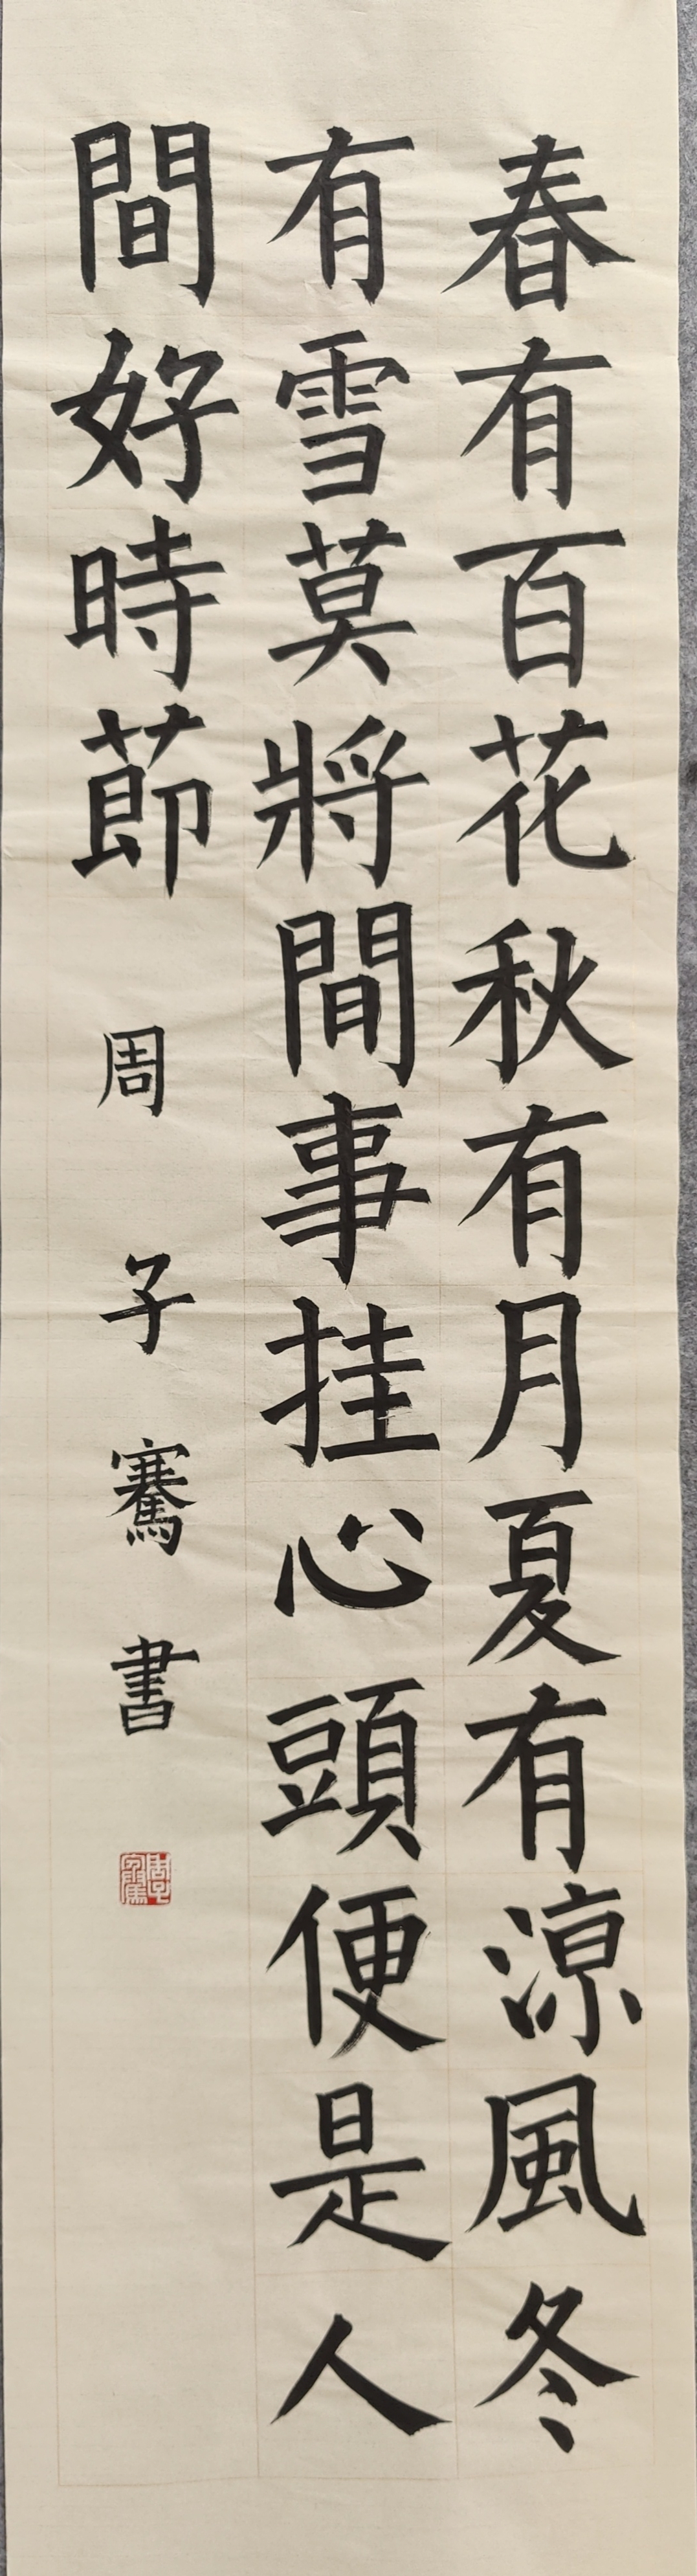 春有百花秋有月夏有涼風冬
有雪莫將間事挂心頭便是人
間好時節
周子騫書
周子騫